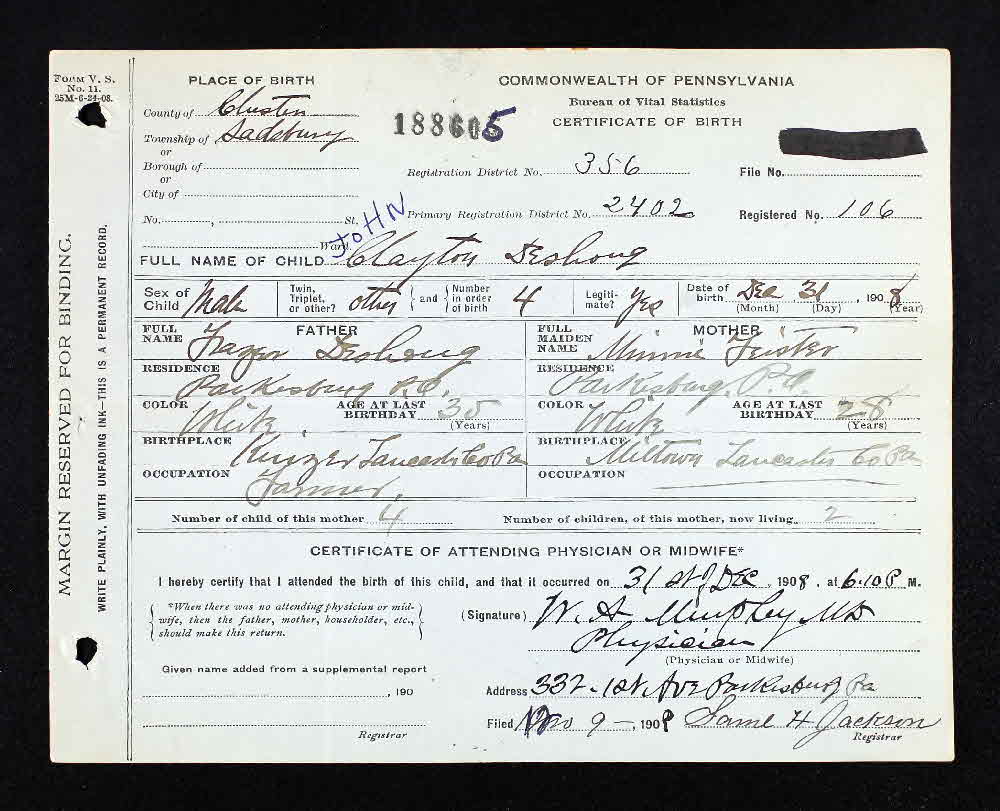 FORM V. S.
No. 11.
25M-6-24-08.
MARGIN RESERVED FOR BINDING.
WRITE PLAINLY, WITH UNFADING INK—THIS IS A PERMANENT RECORD.
PLACE OF BIRTH
County of Chester
Township of Sadsbury
or
Borough of
or
City of
No. , St.
Ward.
188605
COMMONWEALTH OF PENNSYLVANIA
Bureau of Vital Statistics
CERTIFICATE OF BIRTH
Registration District No. 356
File No.
Primary Registration District No. 2402
Registered No. 106
JOHN
FULL NAME OF CHILD Clayton Deshong
Sex of Child Male
Twin, Triplet, or other? other and Number in order of birth 4
Legitimate? Yes
Date of birth Dec 31, 1908
(Month) (Day) (Year)
FATHER
FULL NAME Frazer Deshong
RESIDENCE Parkesburg P.O.
COLOR White
AGE AT LAST BIRTHDAY 35
(Years)
BIRTHPLACE Kinzer Lancaster Co Pa
OCCUPATION Farmer.
MOTHER
FULL MAIDEN NAME Minnie Feister
RESIDENCE Parkesburg, P.O.
COLOR White
AGE AT LAST BIRTHDAY 28
(Years)
BIRTHPLACE Lancaster Co Pa
OCCUPATION
Number of child of this mother 4
Number of children, of this mother, now living 2
CERTIFICATE OF ATTENDING PHYSICIAN OR MIDWIFE*
I hereby certify that I attended the birth of this child, and that it occurred on 31st of Dec, 1908, at 6.10 P M.
*When there was no attending physician or mid-
wife, then the father, mother, householder, etc.,
should make this return.
(Signature) W. A. MD
Physician
(Physician or Midwife)
Given name added from a supplemental report
, 190
Registrar
Address 332 - 1st Ave Parkesburg Pa
Filed 9 - 1909 H Jackson
Registrar